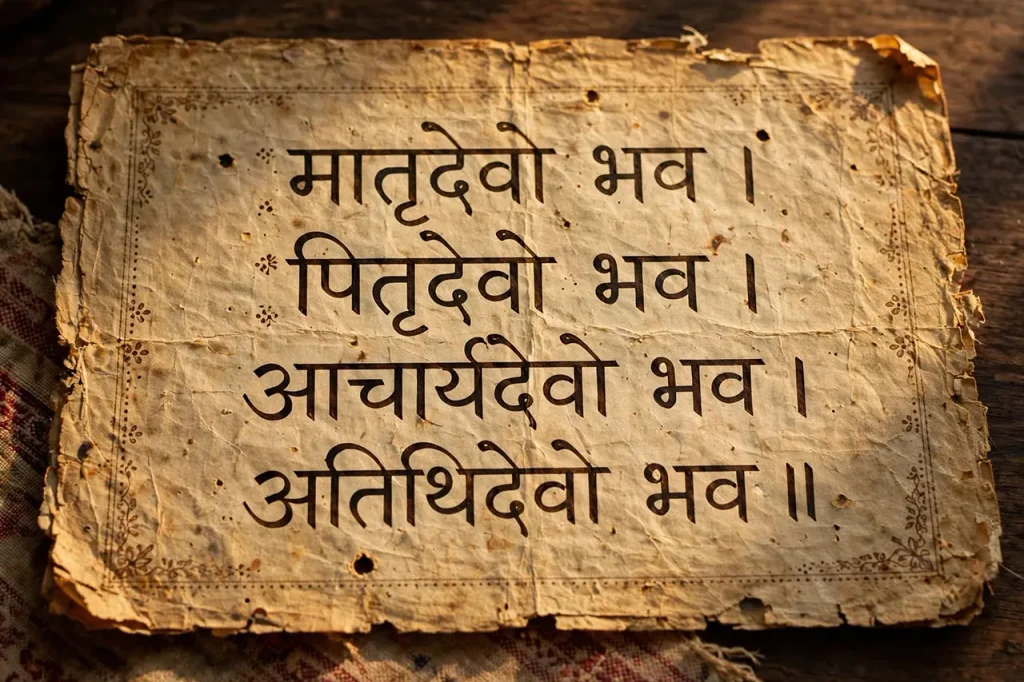 मातृदेवो भव ।
पितृदेवो भव ।
आचार्यदेवो भव ।
अतिथिदेवो भव ॥